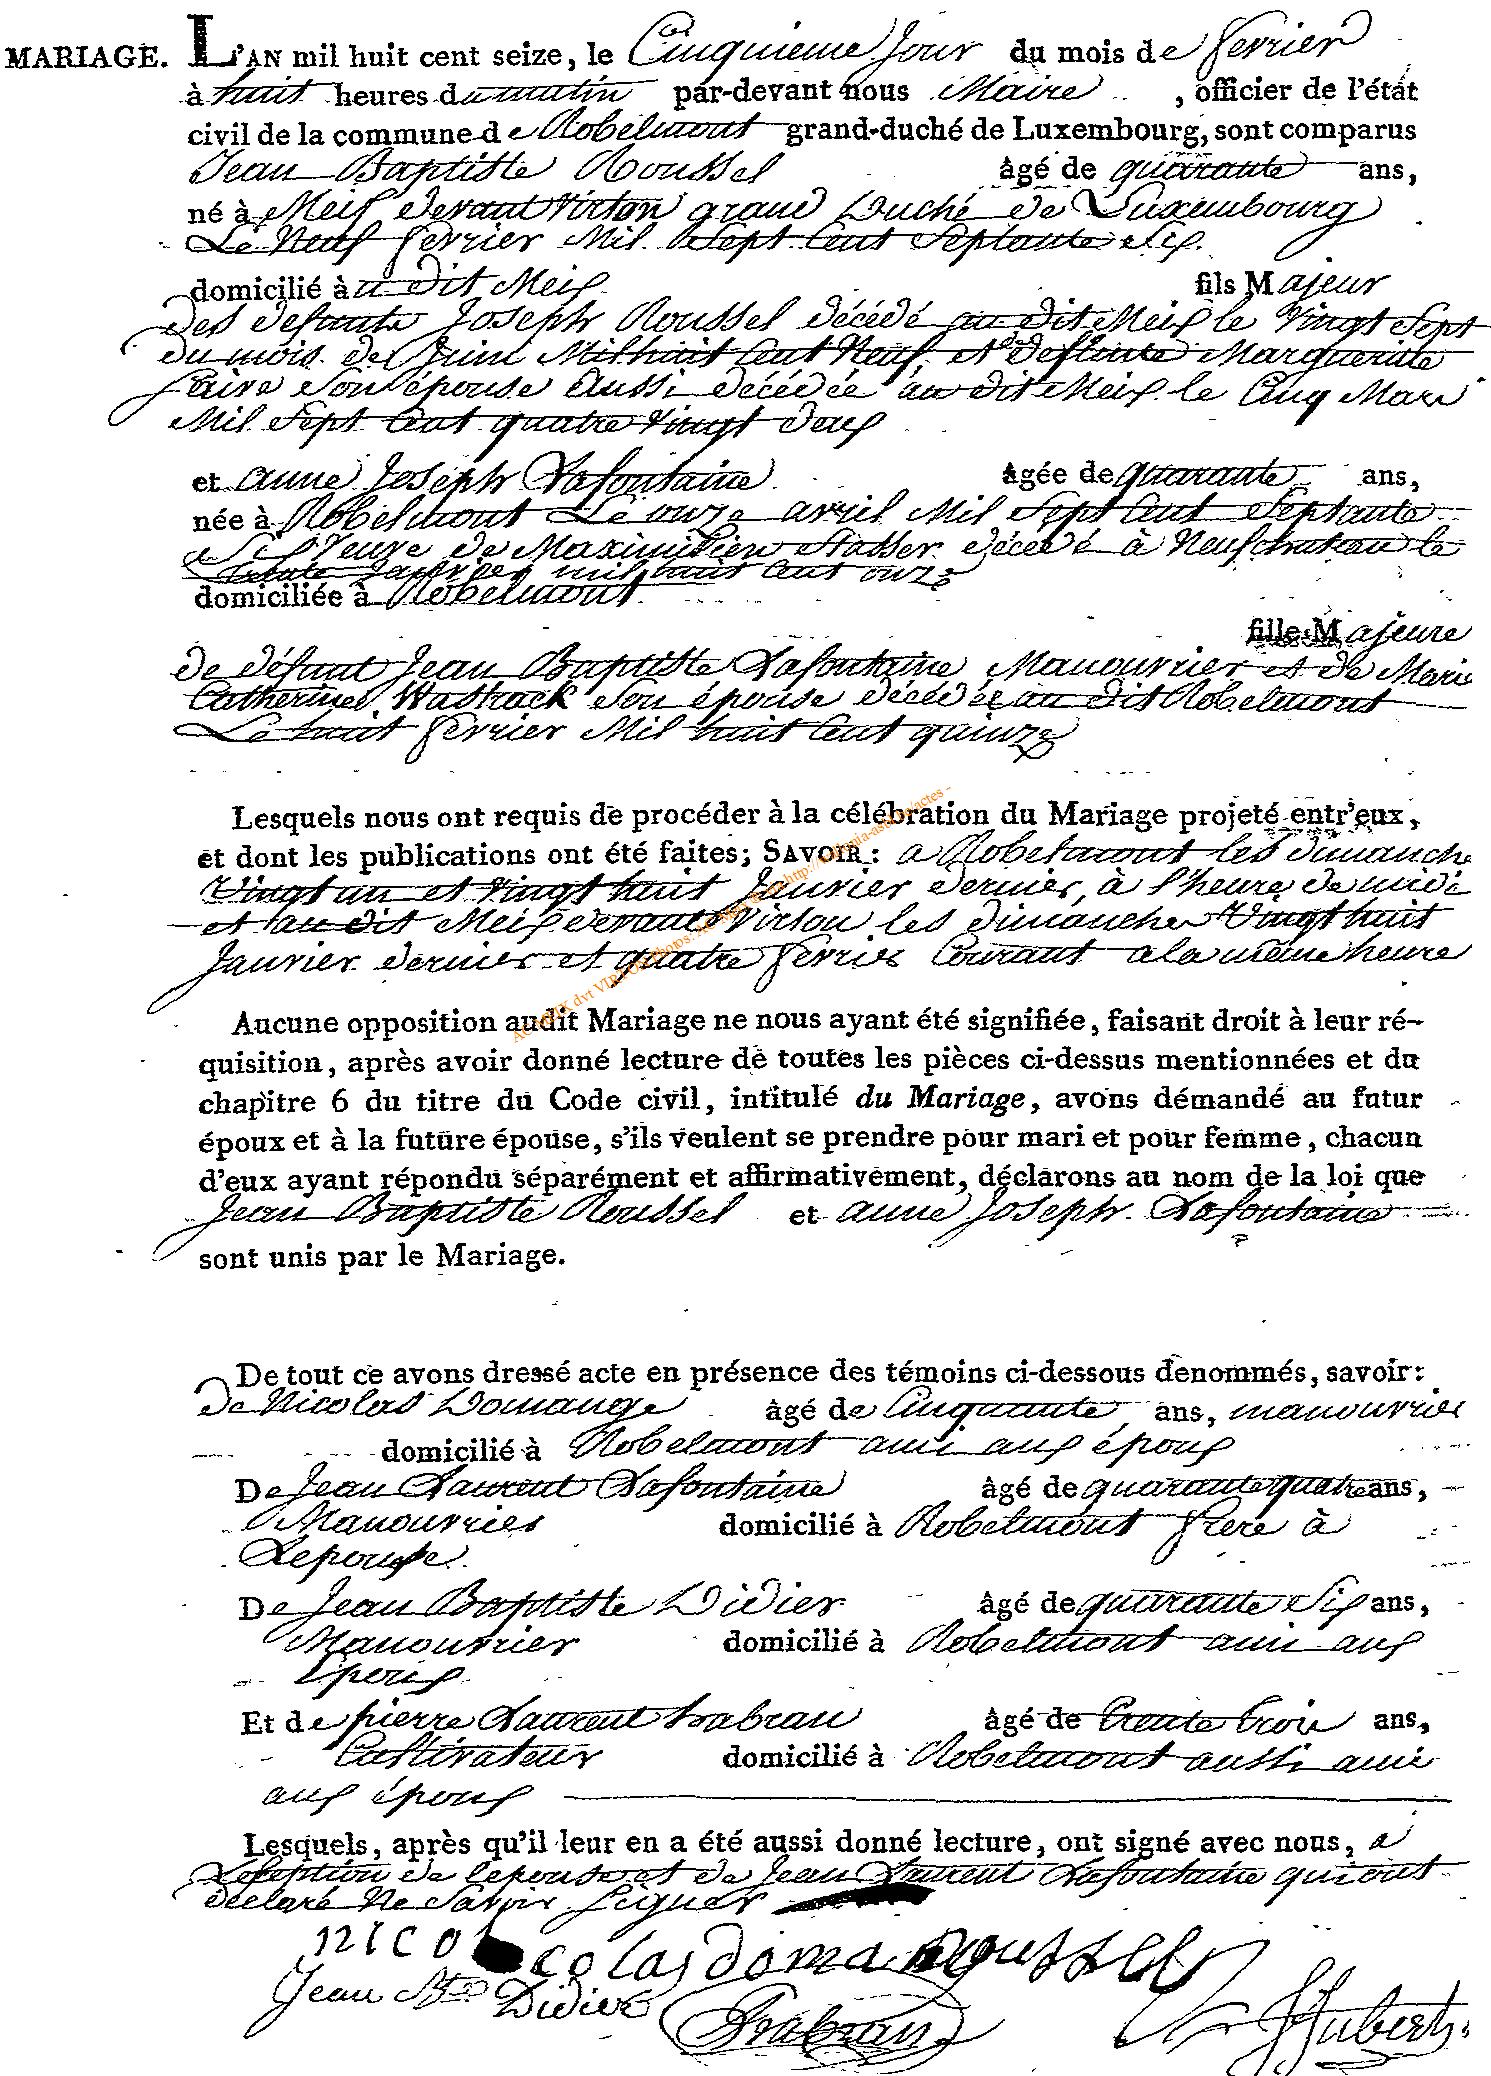 MARIAGE. L'AN mil huit cent seize, le Cinquieme Jour du mois de fevrier
à huit heures du matin par-devant nous Maire, officier de l'état
civil de la commune de Robelmont grand-duché de Luxembourg, sont comparus
Jean Baptiste Roussel âgé de quarante ans,
né à Meix devant Virton grand Duché de Luxembourg
Le Neuf fevrier Mil Sept Cent Septante Six
domicilié à u dit Meix fils Majeur
des defunts Joseph Roussel décédé au dit Meix le Vingt Sept
du mois de Juin Mil huit Cent Neuf, et defunte Marguerite
son épouse aussi décédée au dit Meix le Cinq Mars
Mil Sept Cent quatre Vingt deux
et anne Joseph Lafontaine âgée de quarante ans,
née à Robelmont Le onze avril Mil Sept Cent Septante
Six Veuve de Maximilien décédé à Neufchateau le
Janvier mil huit Cent onze
domiciliée à Robelmont
fille Majeure
de défunt Jean Baptiste Lafontaine Manouvrier et de Marie
Catherine Wastrack Son épouse décédée au dit Robelmont
Le huit fevrier Mil huit Cent quinze
Lesquels nous ont requis de procéder à la célébration du Mariage projeté entr'eux,
et dont les publications ont été faites; SAVOIR: a Robelmont les dimanche
Vingt un et Vingt huit Janvier dernier, à l'heure de midi
et au dit Meix devant Virton les dimanche Vingt huit
Janvier dernier et quatre fevrier Courant a la même heure
Aucune opposition audit Mariage ne nous ayant été signifiée, faisant droit à leur ré-
quisition, après avoir donné lecture de toutes les pièces ci-dessus mentionnées et du
chapitre 6 du titre du Code civil, intitulé du Mariage, avons démandé au futur
époux et à la future épouse, s'ils veulent se prendre pour mari et pour femme, chacun
d'eux ayant répondu séparément et affirmativement, déclarons au nom de la loi que
Jean Baptiste Roussel et anne Joseph Lafontaine
sont unis par le Mariage.
De tout ce avons dressé acte en présence des témoins ci-dessous denommés, savoir:
de Nicolas Domange âgé de Cinquante ans, manouvrier
domicilié à Robelmont ami aux époux
De Jean Laurent Lafontaine âgé de quarante quatre ans,
Manouvrier domicilié à Robelmont frere à
Lepouse
De Jean Baptiste Didier âgé de quarante Six ans,
Manouvrier domicilié à Robelmont ami aux
époux
Et de pierre Laurent Trabran âgé de trente trois ans,
Cultivateur domicilié à Robelmont aussi ami
aux époux
Lesquels, après qu'il leur en a été aussi donné lecture, ont signé avec nous, a
Lexeption de lepouse et de Jean Laurent Lafontaine qui ont
déclaré Ne Savoir Signer
nico colas doman Roussel
Jean Bte Didier Trabran Hubert